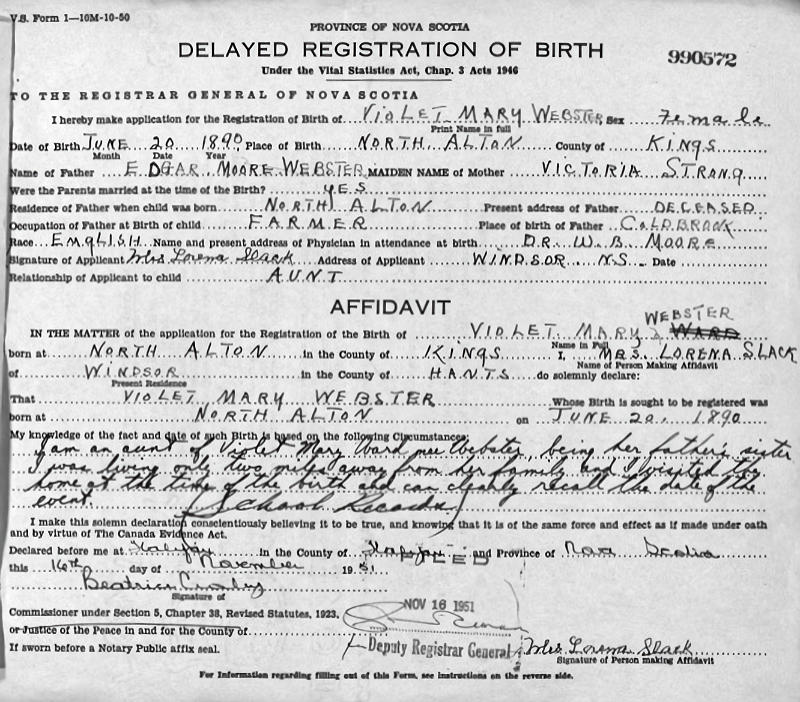 V.S. Form 1—10M-10-50
PROVINCE OF NOVA SCOTIA
DELAYED REGISTRATION OF BIRTH
990572
Under the Vital Statistics Act, Chap. 3 Acts 1946
TO THE REGISTRAR GENERAL OF NOVA SCOTIA
I hereby make application for the Registration of Birth of VIOLET MARY WEBSTER Sex Female
Print Name in full
Date of Birth JUNE 20 1890 Place of Birth NORTH ALTON County of KINGS
Month Date Year
Name of Father EDGAR MOORE WEBSTER MAIDEN NAME of Mother VICTORIA STRONG
Were the Parents married at the time of the Birth? YES
Residence of Father when child was born NORTH ALTON Present address of Father DECEASED
Occupation of Father at Birth of child FARMER Place of birth of Father COLDBROOK
Race ENGLISH Name and present address of Physician in attendance at birth DR. W. B. MOORE
Signature of Applicant Mrs Lorena Slack Address of Applicant WINDSOR N.S Date
Relationship of Applicant to child AUNT
AFFIDAVIT
WEBSTER
IN THE MATTER of the application for the Registration of the Birth of VIOLET MARY WARD
Name in Full
born at NORTH ALTON in the County of KINGS I, MRS. LORENA SLACK
Name of Person Making Affidavit
of WINDSOR in the County of HANTS do solemnly declare:
Present Residence
That VIOLET MARY WEBSTER Whose Birth is sought to be registered was
born at NORTH ALTON on JUNE 20, 1890
My knowledge of the fact and date of such Birth is based on the following Circumstances
I am an aunt of Violet Mary Ward nee Webster, being her father's sister
I was living only two miles away from her family and I visited the
home at the time of the birth and can clearly recall the date of the
event. (School Records)
I make this solemn declaration conscientiously believing it to be true, and knowing that it is of the same force and effect as if made under oath
and by virtue of The Canada Evidence Act.
Declared before me at Halifax in the County of Halifax and Province of Nova Scotia
FILED
this 16th day of November 1951
Beatrice
Signature of
NOV 16 1951
Commissioner under Section 5, Chapter 38, Revised Statutes, 1923.
or Justice of the Peace in and for the County of
Deputy Registrar General
Mrs Lorena Slack
If sworn before a Notary Public affix seal.
Signature of Person making Affidavit
For Information regarding filling out of this Form, see instructions on the reverse side.